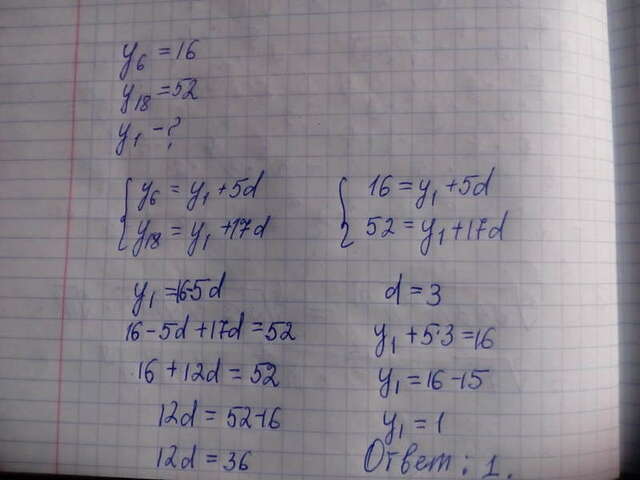 y₆ = 16
y₁₈ = 52
y₁ - ?
y₆ = y₁ + 5d
y₁₈ = y₁ + 17d
16 = y₁ + 5d
52 = y₁ + 17d
y₁ = 16-5d
16 - 5d + 17d = 52
16 + 12d = 52
12d = 52-16
12d = 36
d = 3
y₁ + 5·3 = 16
y₁ = 16 - 15
y₁ = 1
Ответ: 1.